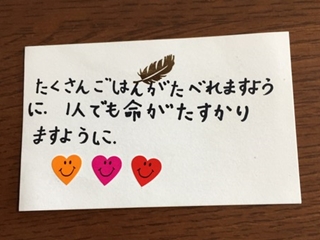 たくさんごはんがたべれますよう
に. 1人でも命がたすかり
ますように.